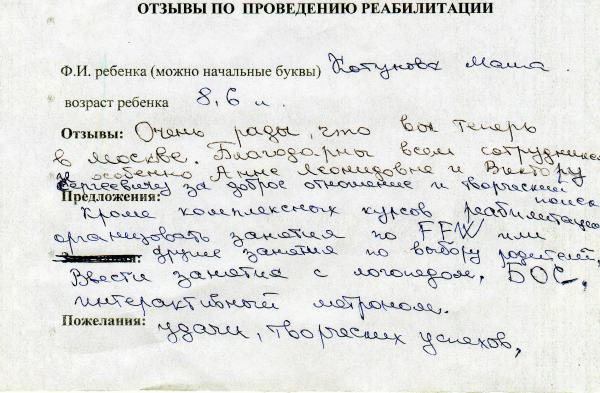 ОТЗЫВЫ ПО ПРОВЕДЕНИЮ РЕАБИЛИТАЦИИ
Ф.И. ребенка (можно начальные буквы) Котунова Маша.
возраст ребенка 8,6 л.
Отзывы: Очень рады, что вы теперь
в Москве. Благодарны всем сотрудникам
и особенно Анне Леонидовне и Виктору
Сергеевичу за доброе отношение и творческий
поиск
Предложения:
Кроме комплексных курсов реабилитации
организовать занятия по FFW или
другие занятия по выбору родителей,
Ввести занятия с логопедом, БОС,
интерактивный метроном.
Пожелания: удачи, творческих успехов,